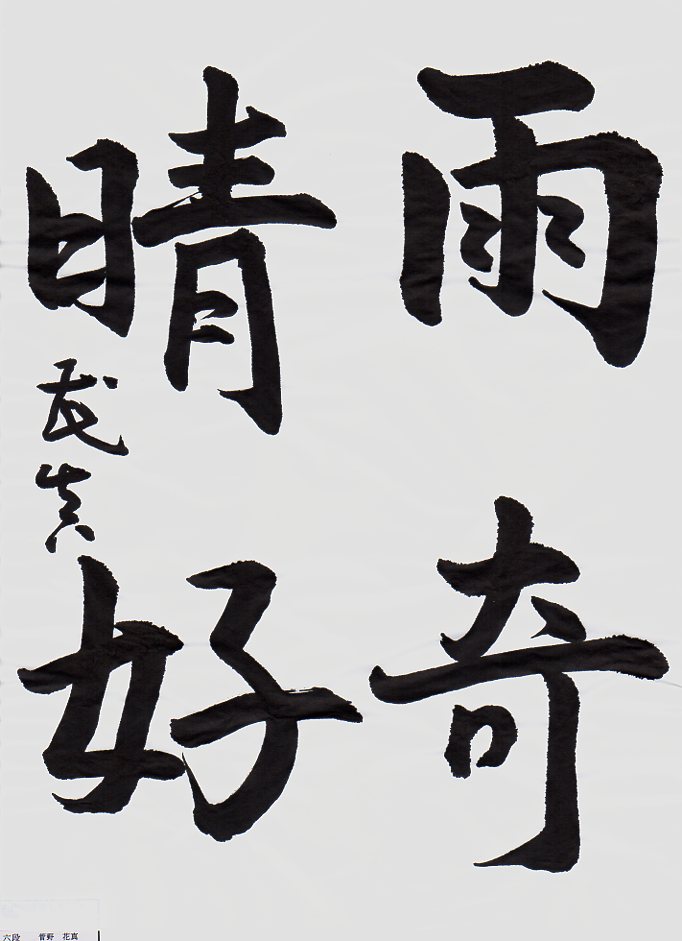 雨奇
晴好
花真
六段 菅野 花真